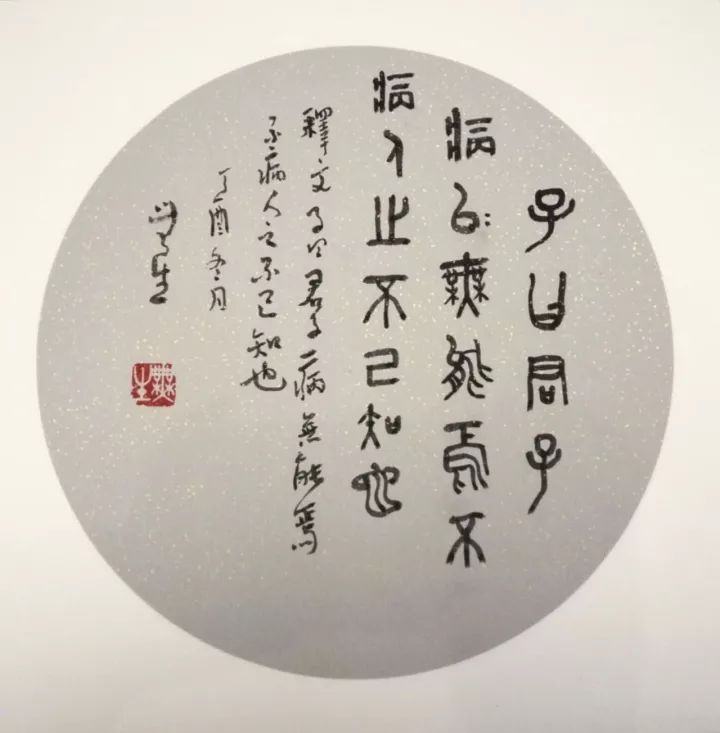 子曰君子
病無能焉不
病人之不己知也
釋文子曰君子病無能焉
不病人之不己知也
丁酉冬月
無生
無生